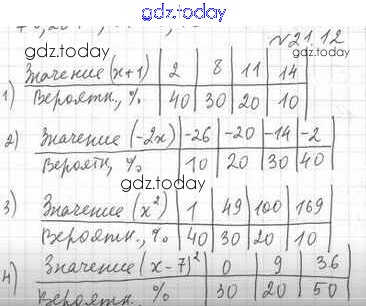 gdz.today
gdz.today gdz.today
№21.12
1) Значение (x+1) | 2 | 8 | 11 | 14
Вероятн., % | 40 | 30 | 20 | 10
2) Значение (-2x) | -26 | -20 | -14 | -2
Вероятн, % | 10 | 20 | 30 | 40
gdz.today
3) Значение (x²) | 1 | 49 | 100 | 169
Вероятн., % | 40 | 30 | 20 | 10
4) Значение (x-7)² | 0 | 9 | 36
Вероятн., % | 30 | 20 | 50
gdz.today gdz.today